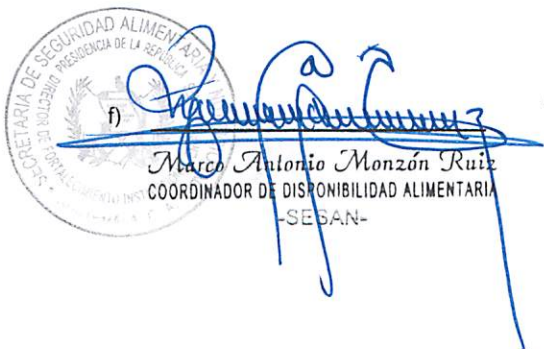 SECRETARIA DE SEGURIDAD ALIMENTARIA Y
PRESIDENCIA DE LA REPUBLICA
DIRECCION DE FORTALECIMIENTO
f)
Marco Antonio Monzón Ruiz
COORDINADOR DE DISPONIBILIDAD ALIMENTARIA
-SESAN-